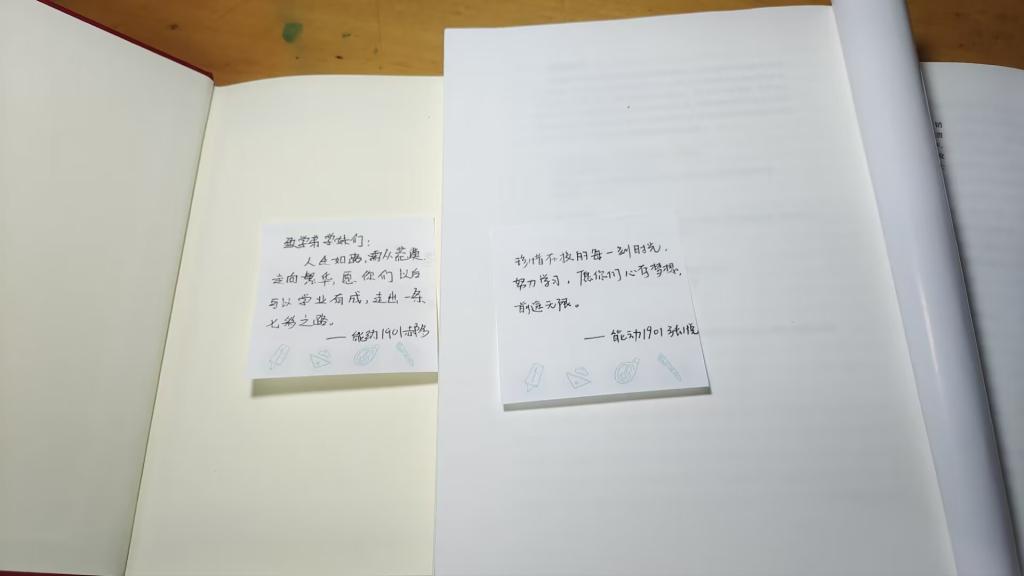 学弟学妹们：
人生如路，需从荒凉
走向繁华，愿你们以后
可以学业有成，走出一条
七彩之路。
—— 能动1901
珍惜在校的每一刻时光，
努力学习，愿你们心有梦想，
前途无限。
—— 能动1901 张